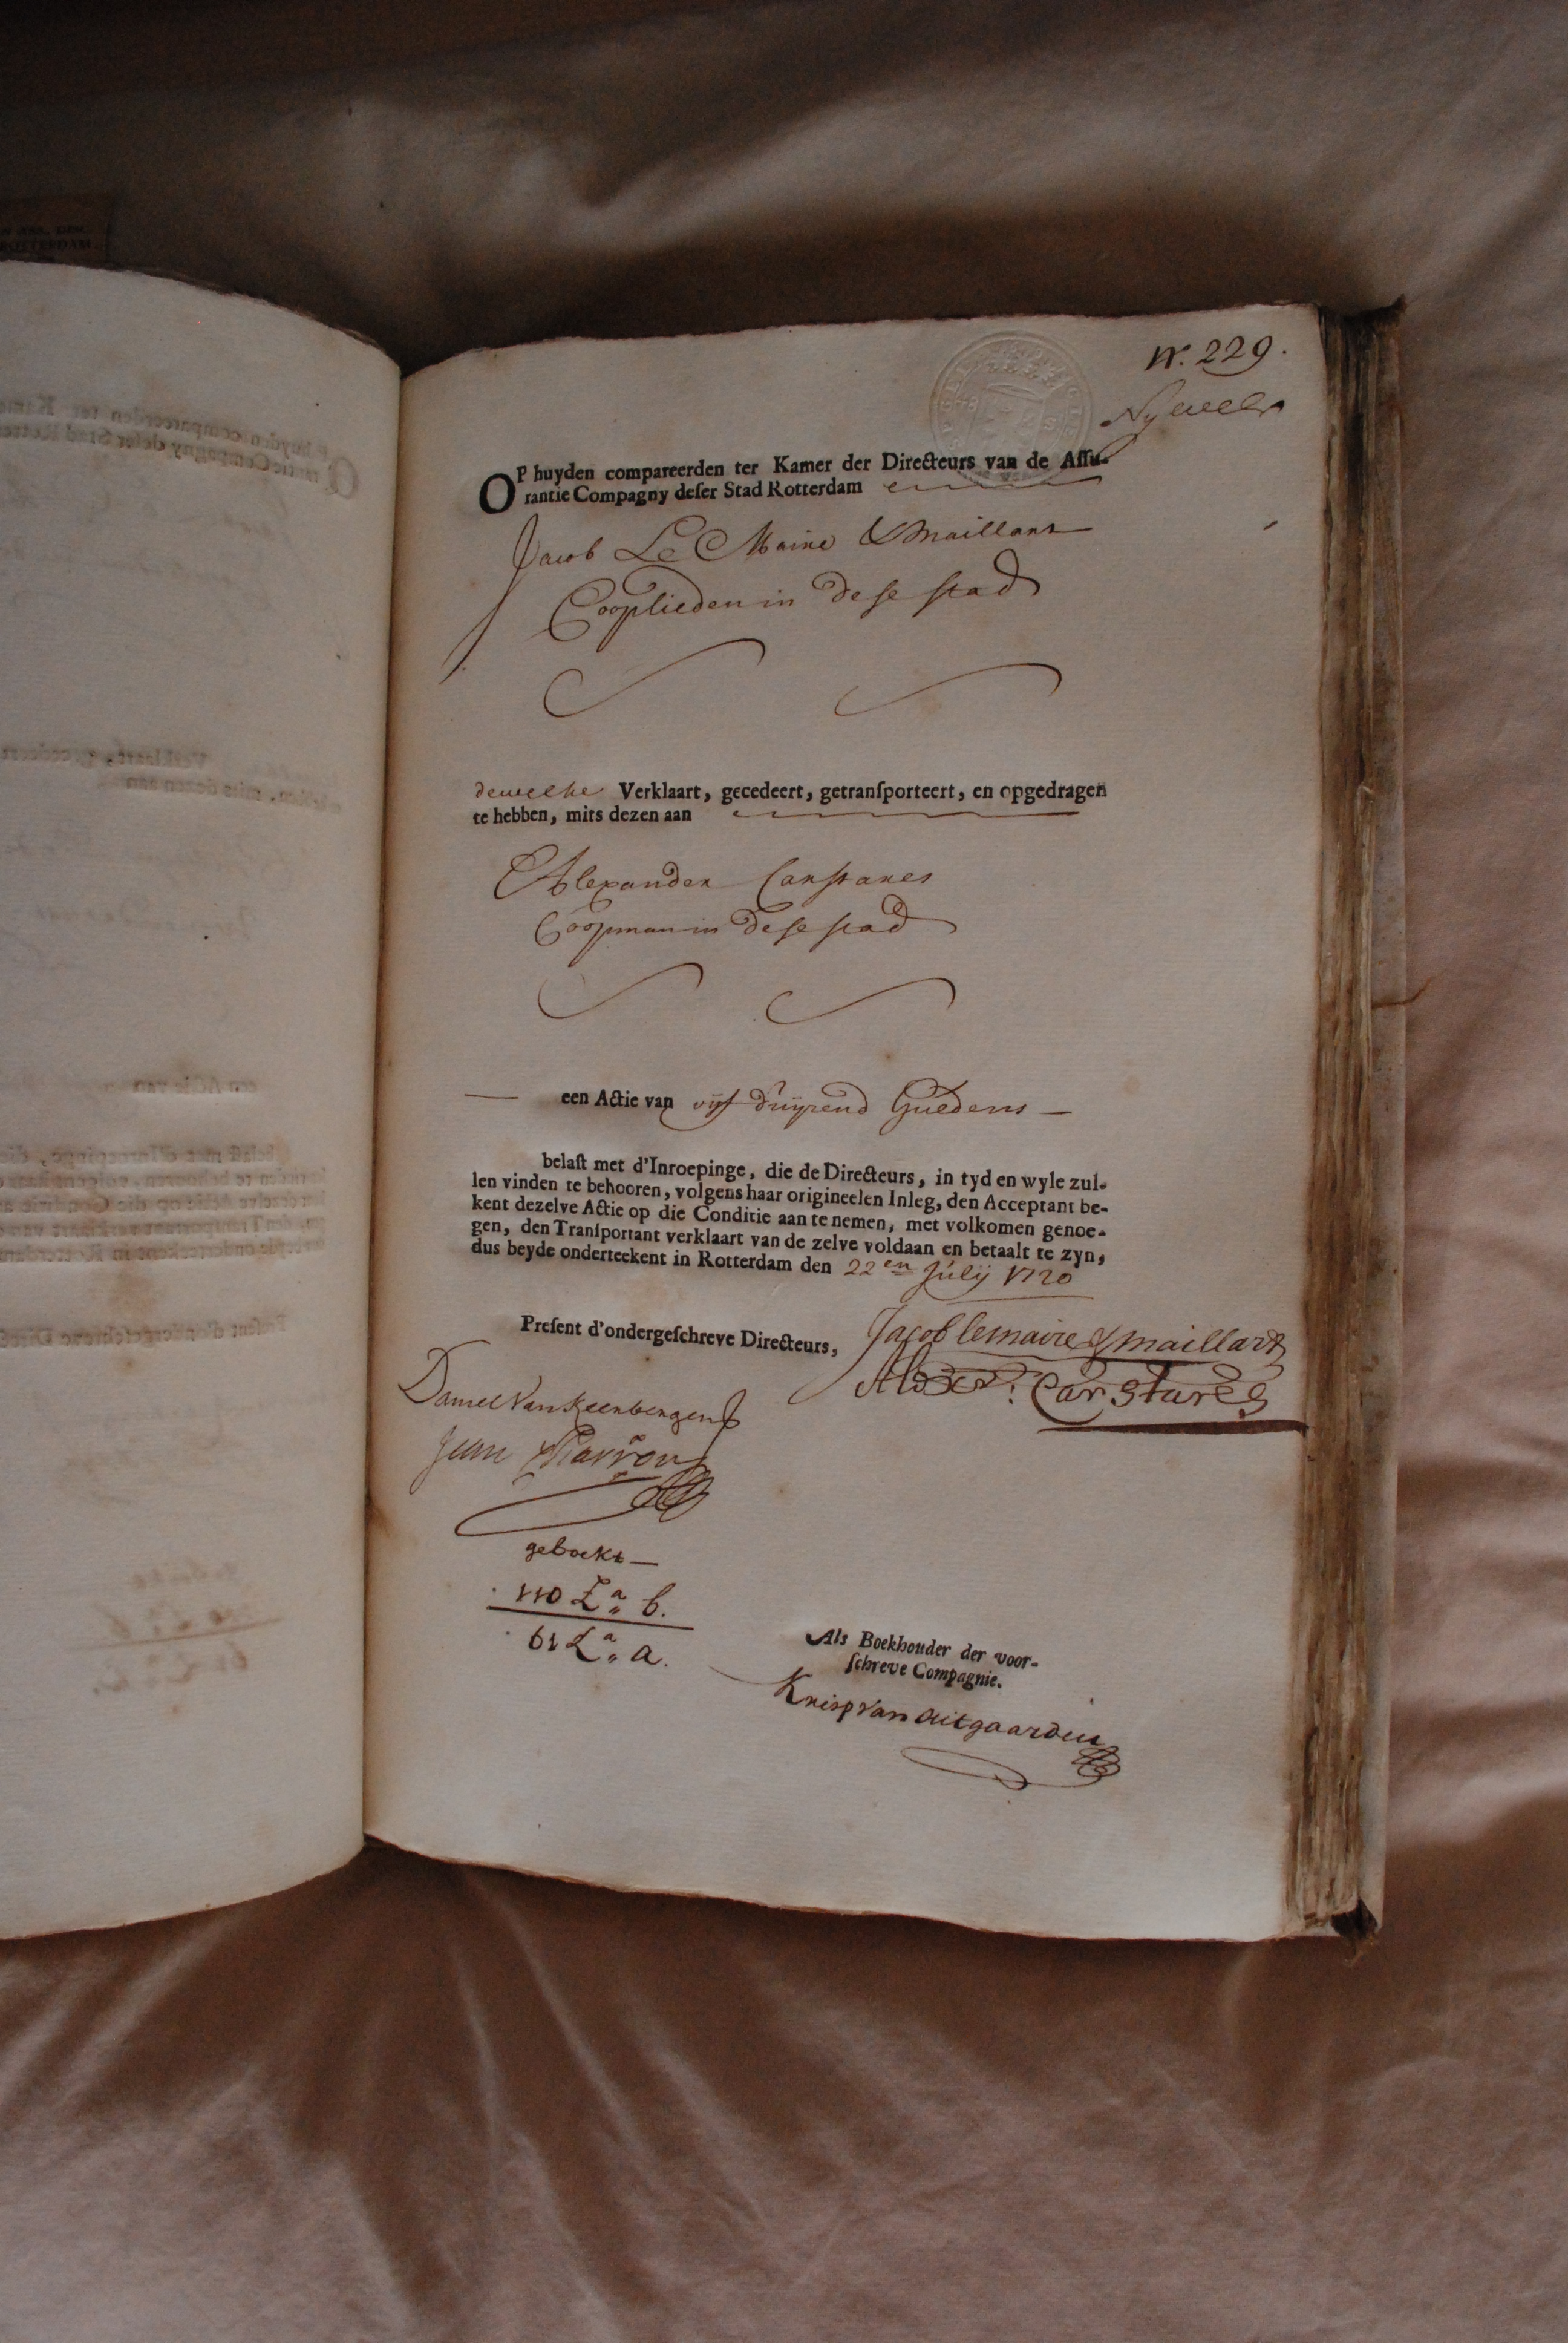 N.º 229.
OP huyden compareerden ter Kamer der Directeurs van de Assu-
rantie Compagny deser Stad Rotterdam
Jacob Le Maire & Maillart
Cooplieden in dese stad
dewelke Verklaart, gecedeert, getransporteert, en opgedragen
te hebben, mits dezen aan
Alexander Carstares
Coopman in dese stad
een Actie van vijf duijzend Guldens
belast met d'Inroepinge, die de Directeurs, in tyd en wyle zul-
len vinden te behooren, volgens haar origineelen Inleg, den Acceptant be-
kent dezelve Actie op die Conditie aan te nemen, met volkomen genoe-
gen, den Transportant verklaart van de zelve voldaan en betaalt te zyn,
dus beyde onderteekent in Rotterdam den 22en Julij 1720
Present d'ondergeschreve Directeurs,
Jacob lemaire & maillart
Alexr: Carstares
Daniel Van
Jean
geboekt
110 La b.
61 La a.
Als Boekhouder der voor-
schreve Compagnie.
Knisp Van